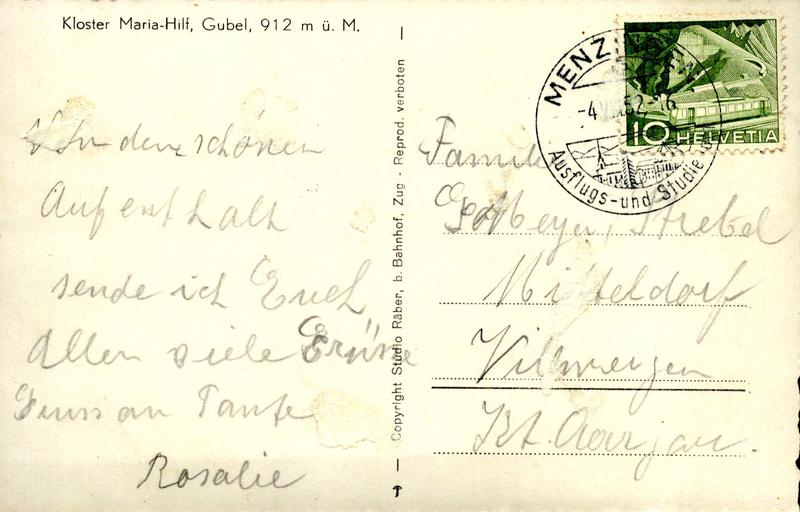 Kloster Maria-Hilf, Gubel, 912 m ü. M.
Von den schönen
Aufenthalt
sende ich Euch
Allen viele Grüsse
an Tante
Rosalie
Copyright Studio Räber, b. Bahnhof, Zug - Reprod. verboten
MENZINGEN
-4. 52-16
Ausflugs-und Studienort
10 HELVETIA
Familie
Meyer, Strebel
Mitteldorf
Villmergen
Kt. Aargau.